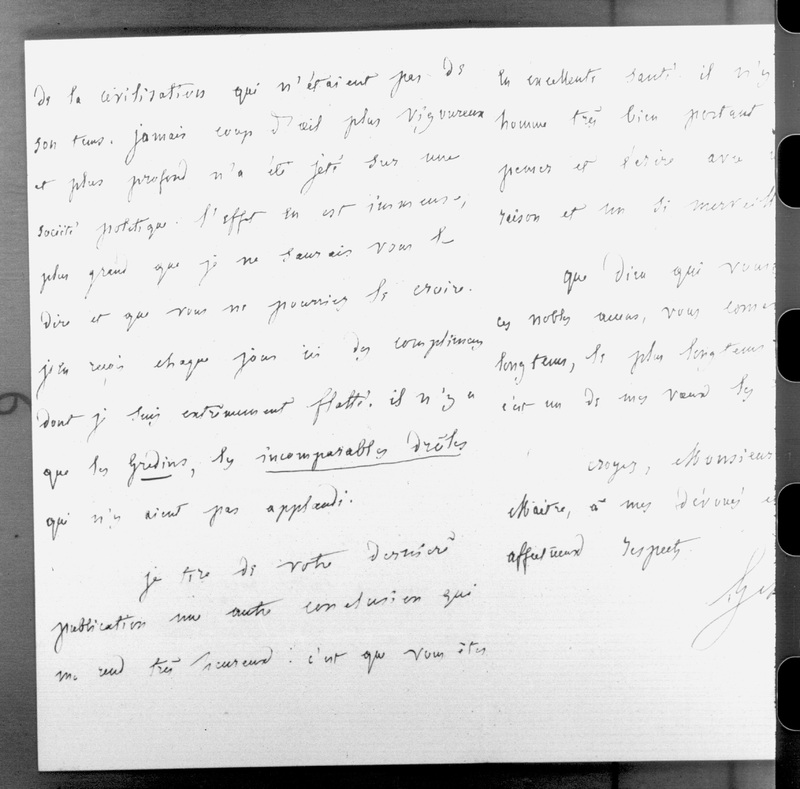 de la civilisation qui n'étaient pas de
son tems. jamais coup d'œil plus vigoureux
et plus profond n'a été jeté sur une
société politique. l'effet en est immense,
plus grand que je ne saurais vous le
dire et que vous ne pourriez le croire.
j'en reçois chaque jour ici des complimens
dont je suis extrêmement flatté. il n'y a
que les Gredins, les incomparables drôles
qui n'y aient pas applaudi.
je tire de votre dernière
publication une autre conclusion qui
me rend très heureux: c'est que vous êtes
en excellente santé. il n'y
homme très bien portant
penser et écrire avec
raison et un si merveill
que Dieu qui vous
ces nobles
longtems, le plus longtems
c'est un de mes vœux les
croyez, Monsieur
Maître, à mes dévoués e
affectueux respects.